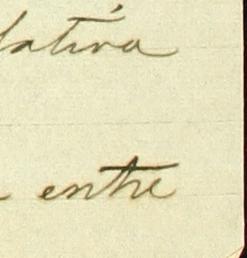 lativa
entre